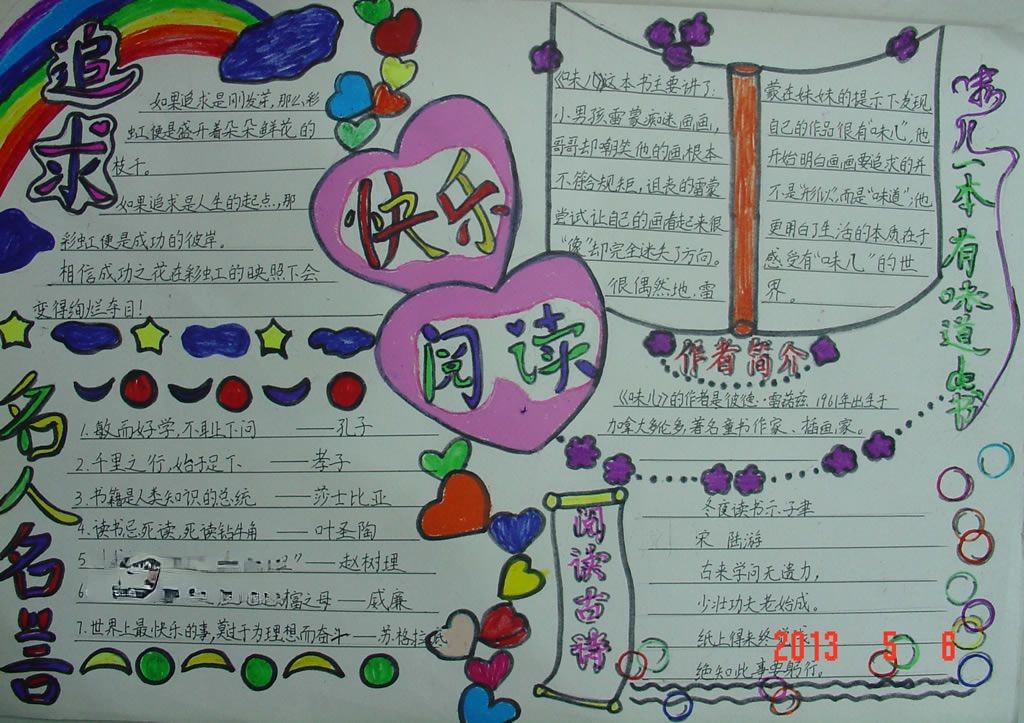 追求
如果追求是刚发芽,那么彩
虹便是盛开着朵朵鲜花的
枝干。
如果追求是人生的起点,那
彩虹便是成功的彼岸。
相信成功之花在彩虹的映照下会
变得绚烂夺目!
名人名言
1.敏而好学,不耻下问 ——孔子
2.千里之行,始于足下 ——孝子
3.书籍是人类知识的总统 ——莎士比亚
4.读书忌死读,死读钻牛角 ——叶圣陶
5 ——赵树理
6 富之母 ——威廉
7.世界上最快乐的事,莫过于为理想而奋斗——苏格拉底
快乐
阅读
《味儿》这本书主要讲了:
小男孩雷蒙痴迷画画,
哥哥却嘲笑他的画根本
不符合规矩,沮丧的雷蒙
尝试让自己的画看起来很
“像”却完全迷失了方向。
很偶然地,雷
蒙在妹妹的提示下发现
自己的作品很有“味儿”,他
开始明白画画要追求的并
不是“形似”,而是“味道”;他
更明白了生活的本质在于
感受有“味儿”的世
界。
味儿一本有味道的书
作者简介
《味儿》的作者是彼德·雷诺兹.1961年出生于
加拿大多伦多,著名童书作家、插画家。
阅读古诗
冬夜读书示子聿
宋 陆游
古来学问无遗力,
少壮功夫老始成。
纸上得来终
绝知此事要躬行。
2013 5 6